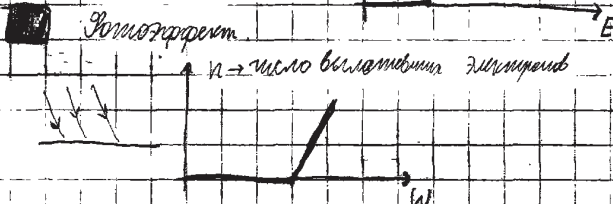 E
Фотоэффект.
n → число вылетевших электронов
W